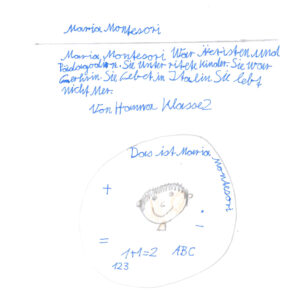 Maria Montesori
Maria Montesori War Äristen und
Pädagogin. Sie unter ritete Kinder. Sie war
Lerherin. Sie Lebet in Italin. Sie lebt
nicht Mer.
Von Hanna Klasse 2
Das ist Maria Montesori
+
-
=
1+1=2 ABC
123